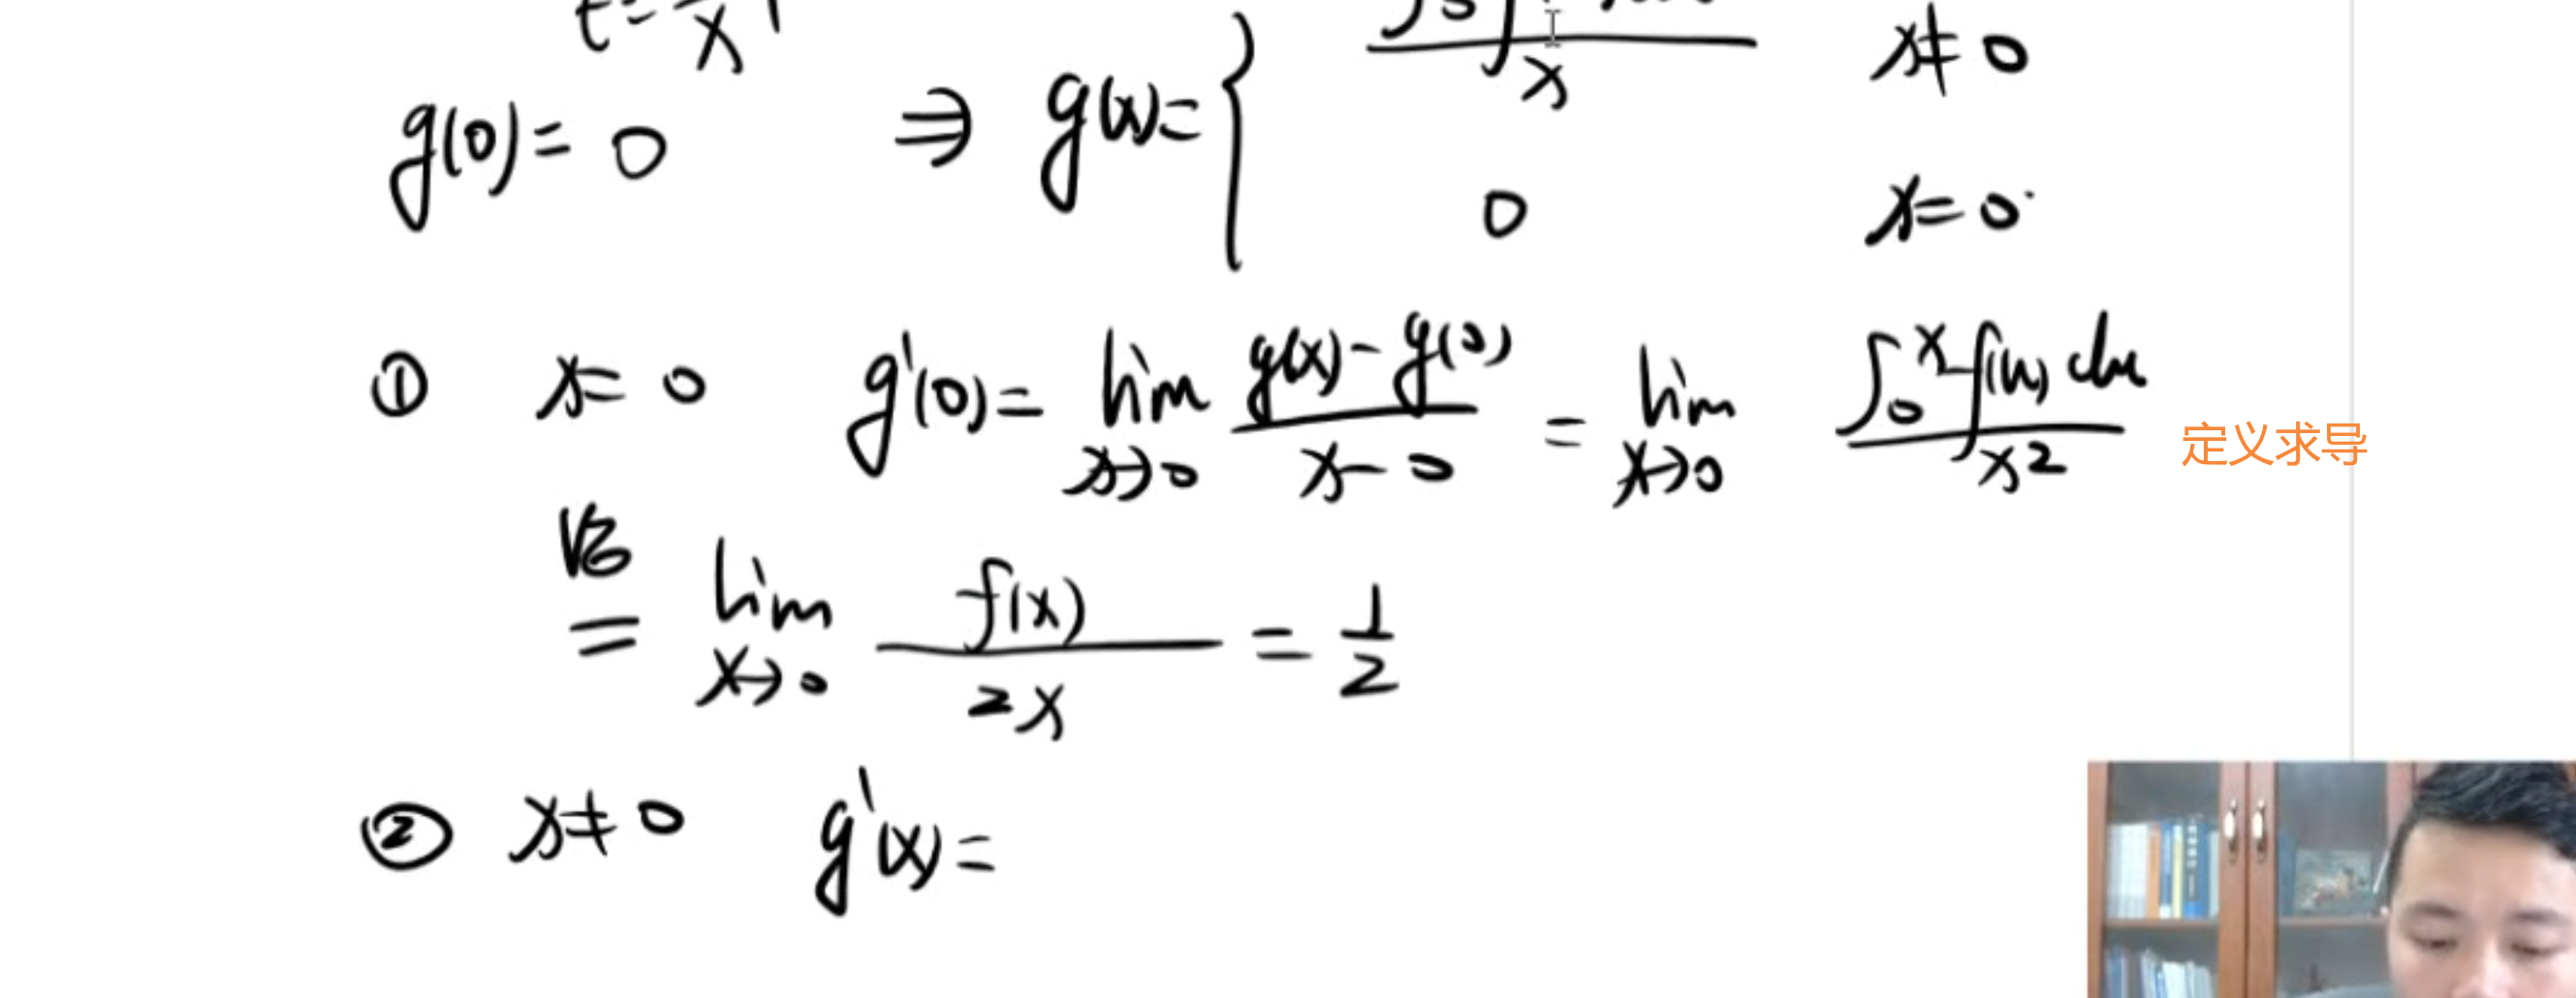 t = x
g(0) = 0 ⇒ g(x) = { x x ≠ 0
0 x = 0
① x = 0 g'(0) = lim x→0 g(x) - g(0) / x - 0 = lim x→0 ∫₀ˣ f(u) du / x² 定义求导
洛 = lim x→0 f(x) / 2x = 1/2
② x ≠ 0 g'(x) =